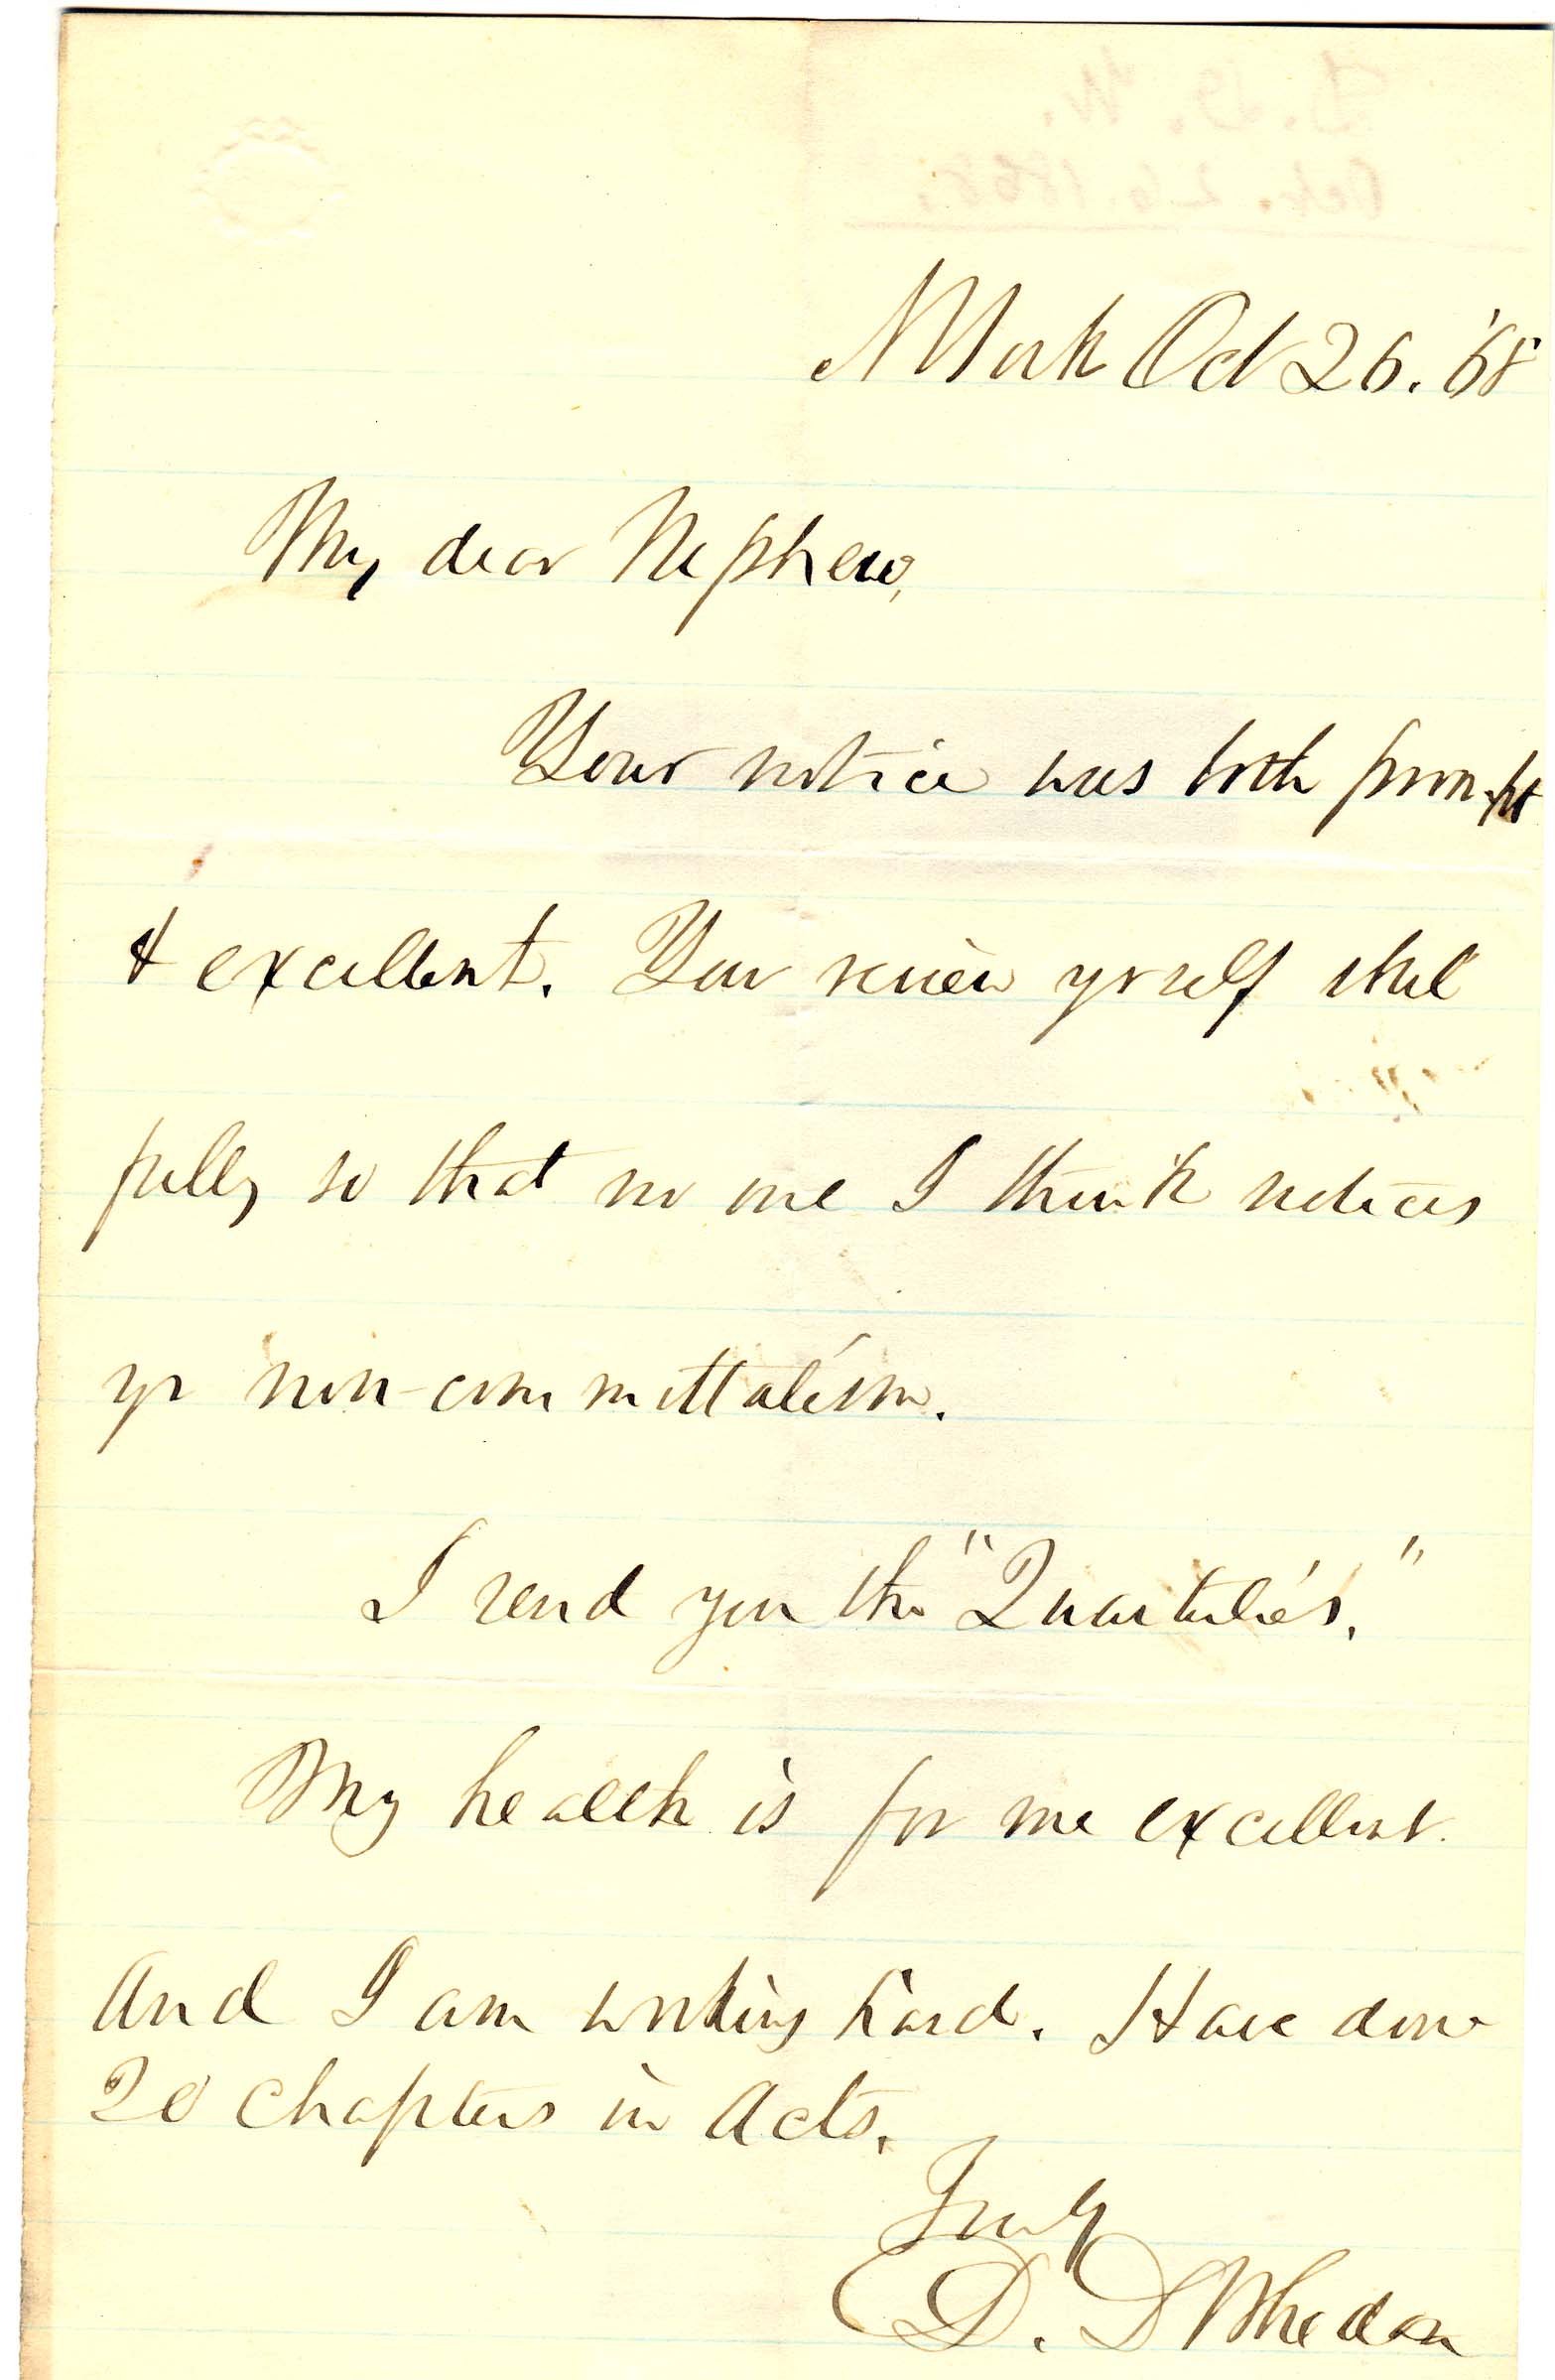 N York Oct 26. '68
My dear Nephew,
Your notice was both prompt
& excellent. You review yrself skil
fully so that no one I think notices
yr non-committalism.
I send you the "Quarterlies."
My health is for me excellent.
And I am working hard. Have done
20 chapters in Acts.
Truly
D. D Whedon